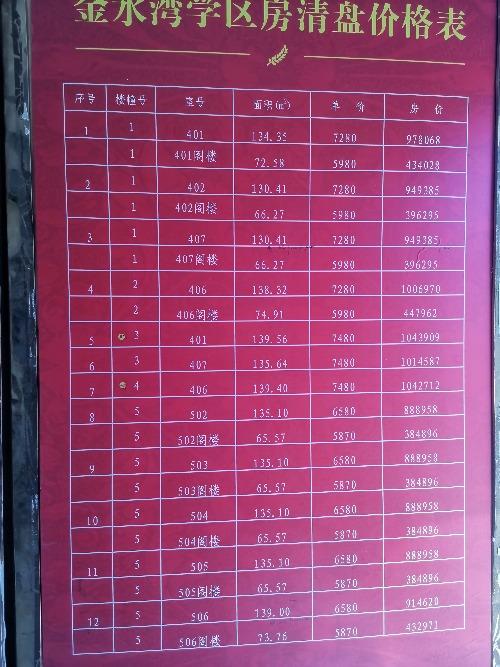 金水湾学区房清盘价格表
序号 楼幢号 室号 面积(㎡) 单 价 房 价
1 1 401 134.35 7280 978068
1 401阁楼 72.58 5980 434028
2 1 402 130.41 7280 949385
1 402阁楼 66.27 5980 396295
3 1 407 130.41 7280 949385
1 407阁楼 66.27 5980 396295
4 2 406 138.32 7280 1006970
2 406阁楼 74.91 5980 447962
5 3 401 139.56 7480 1043909
6 3 407 135.64 7480 1014587
7 4 406 139.40 7480 1042712
8 5 502 135.10 6580 888958
5 502阁楼 65.57 5870 384896
9 5 503 135.10 6580 888958
5 503阁楼 65.57 5870 384896
10 5 504 135.10 6580 888958
5 504阁楼 65.57 5870 384896
11 5 505 135.10 6580 888958
5 505阁楼 65.57 5870 384896
12 5 506 139.00 6580 914620
5 506阁楼 73.76 5870 432971